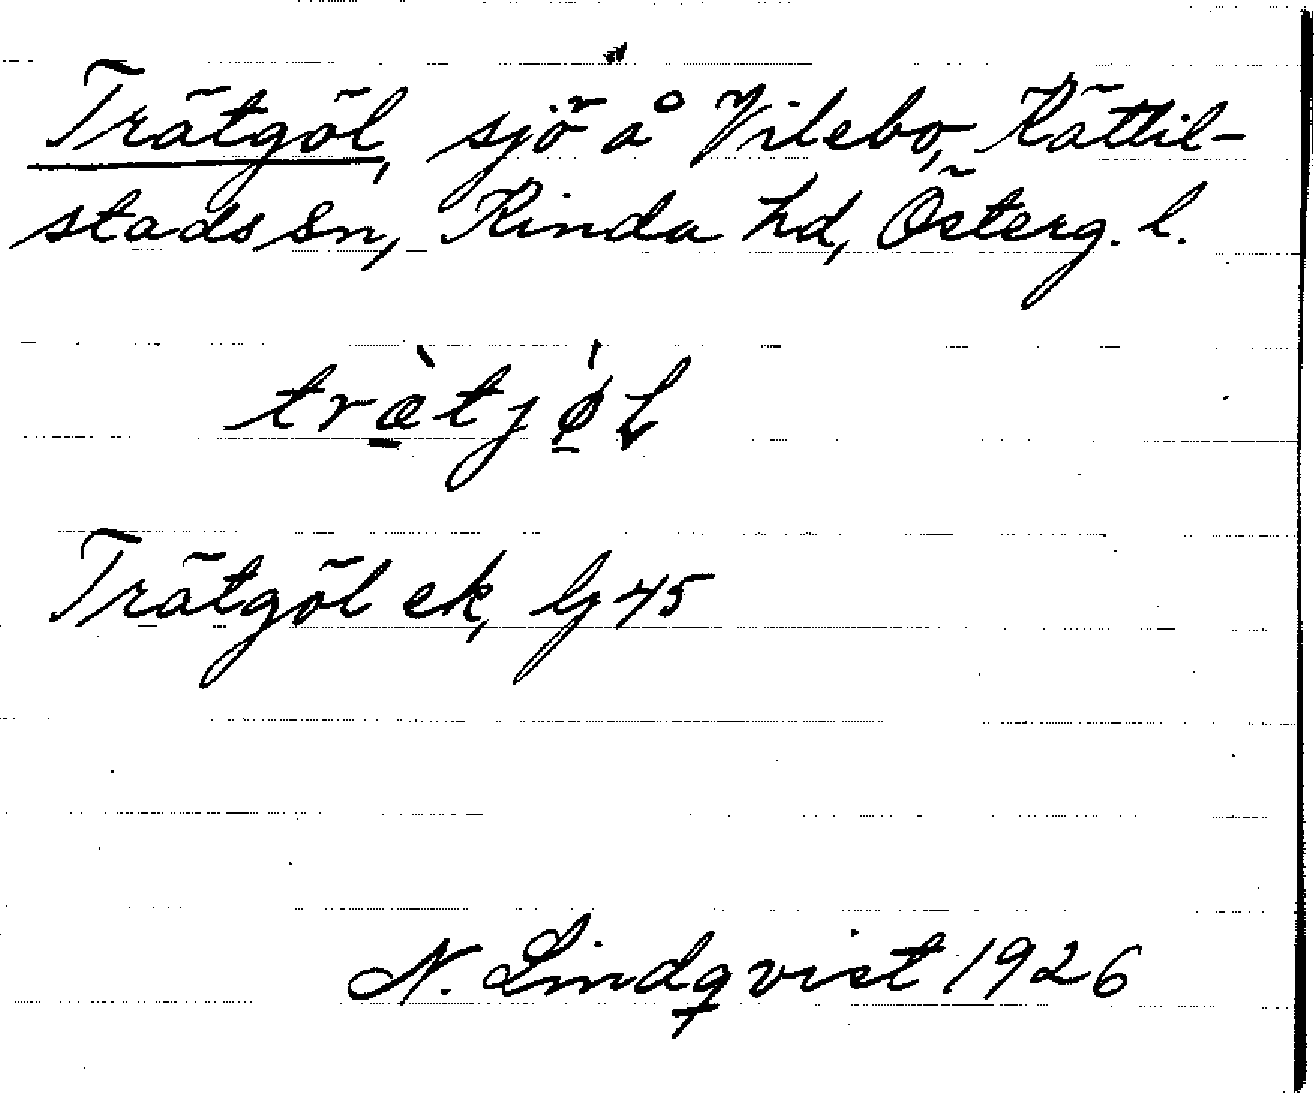 Trätgöl, sjö å Vilebo, Kättil-
stads sn, Kinda hd, Österg. l.
træ̠̀tjø̠̍ɫ
Trätgöl ek, lj 45
N. Lindqvist 1926